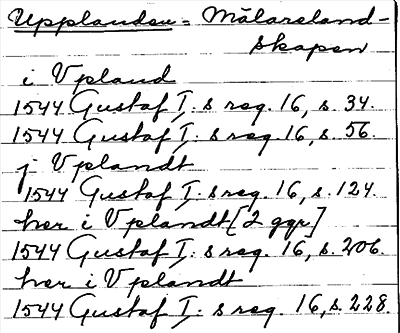 Upplanden = Mälareland-
skapen
i Vpland
1544 Gustaf I: s reg. 16, s. 34.
1544 Gustaf I: s reg. 16, s. 56.
j Vplandt
1544 Gustaf I: s reg. 16, s. 124.
her i Vplandt [2 ggr]
1544 Gustaf I: s reg. 16, s. 206.
her i Vplandt
1544 Gustaf I: s reg. 16, s. 228.